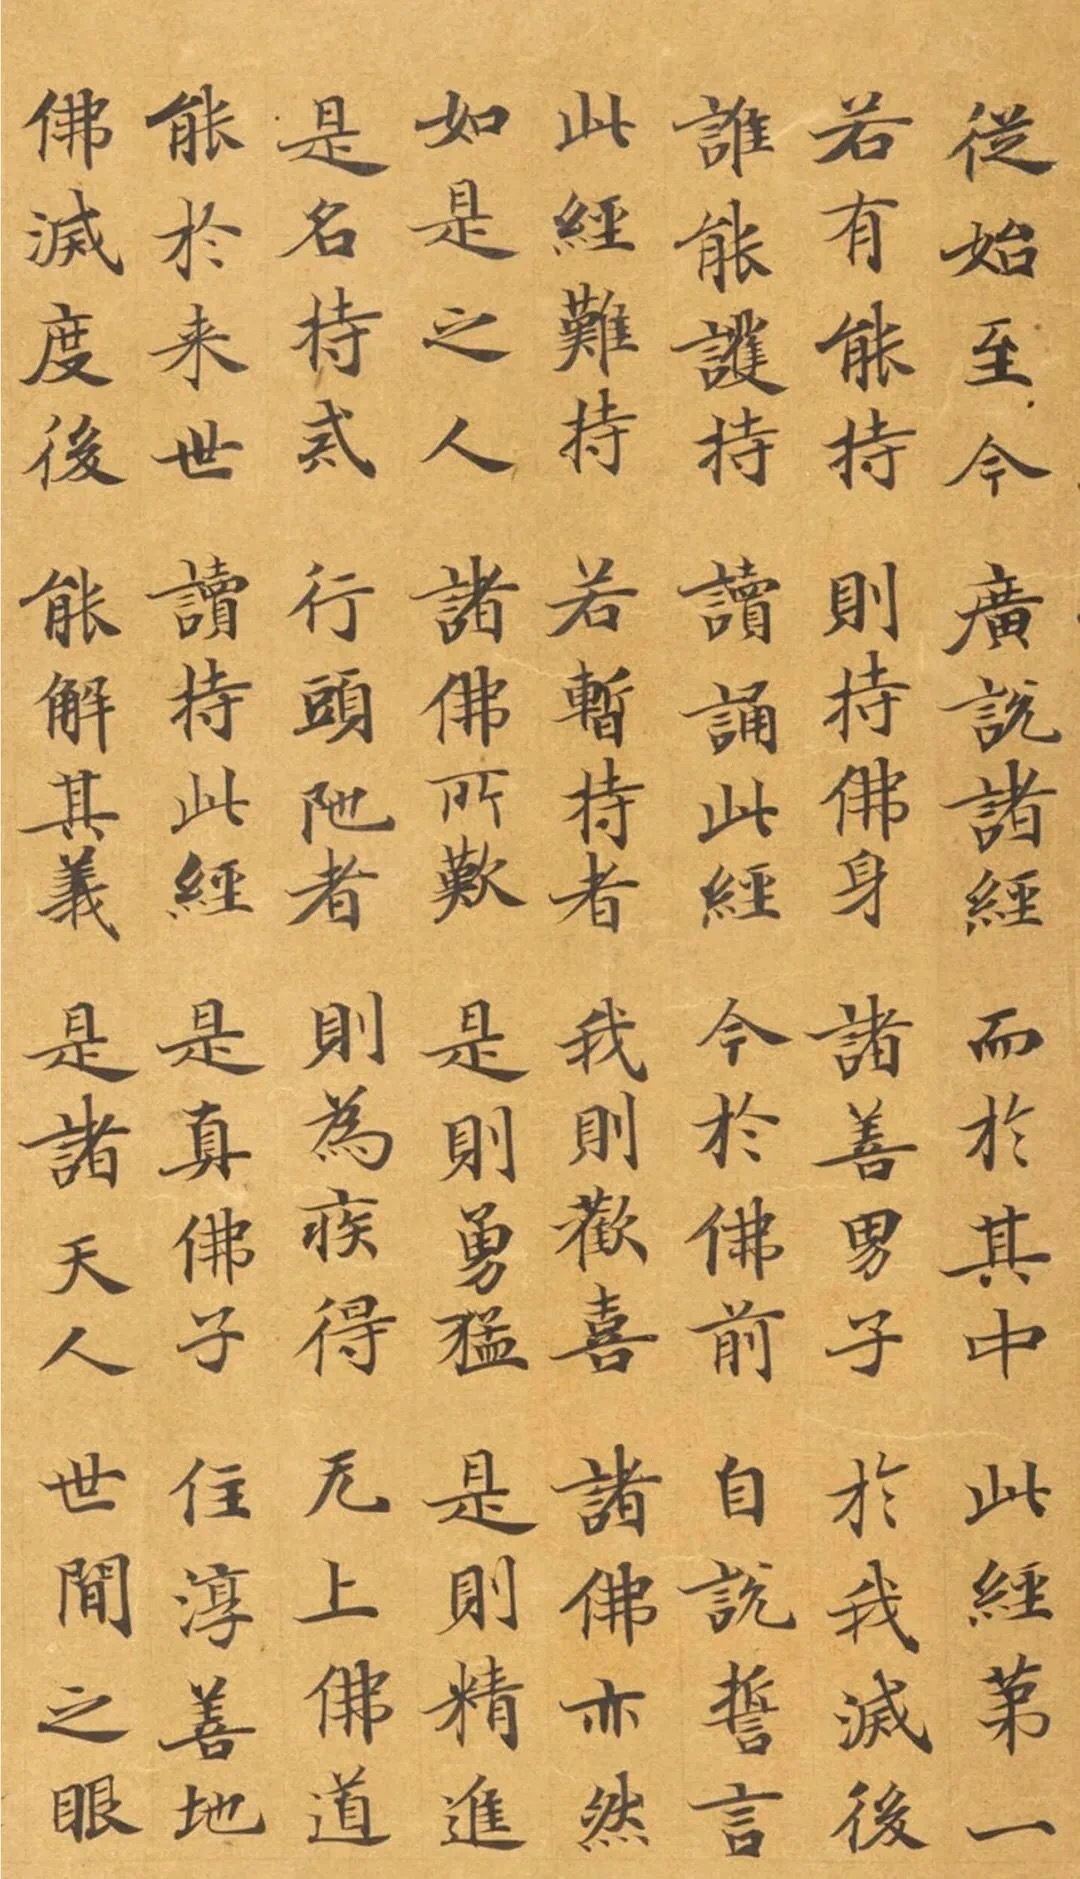 從始至今 廣說諸經 而於其中 此經第一
若有能持 則持佛身 諸善男子 於我滅後
誰能護持 讀誦此經 今於佛前 自說誓言
此經難持 若暫持者 我則歡喜 諸佛亦然
如是之人 諸佛所歎 是則勇猛 是則精進
是名持戒 行頭陁者 則為疾得 无上佛道
能於来世 讀持此經 是真佛子 住淳善地
佛滅度後 能解其義 是諸天人 世間之眼